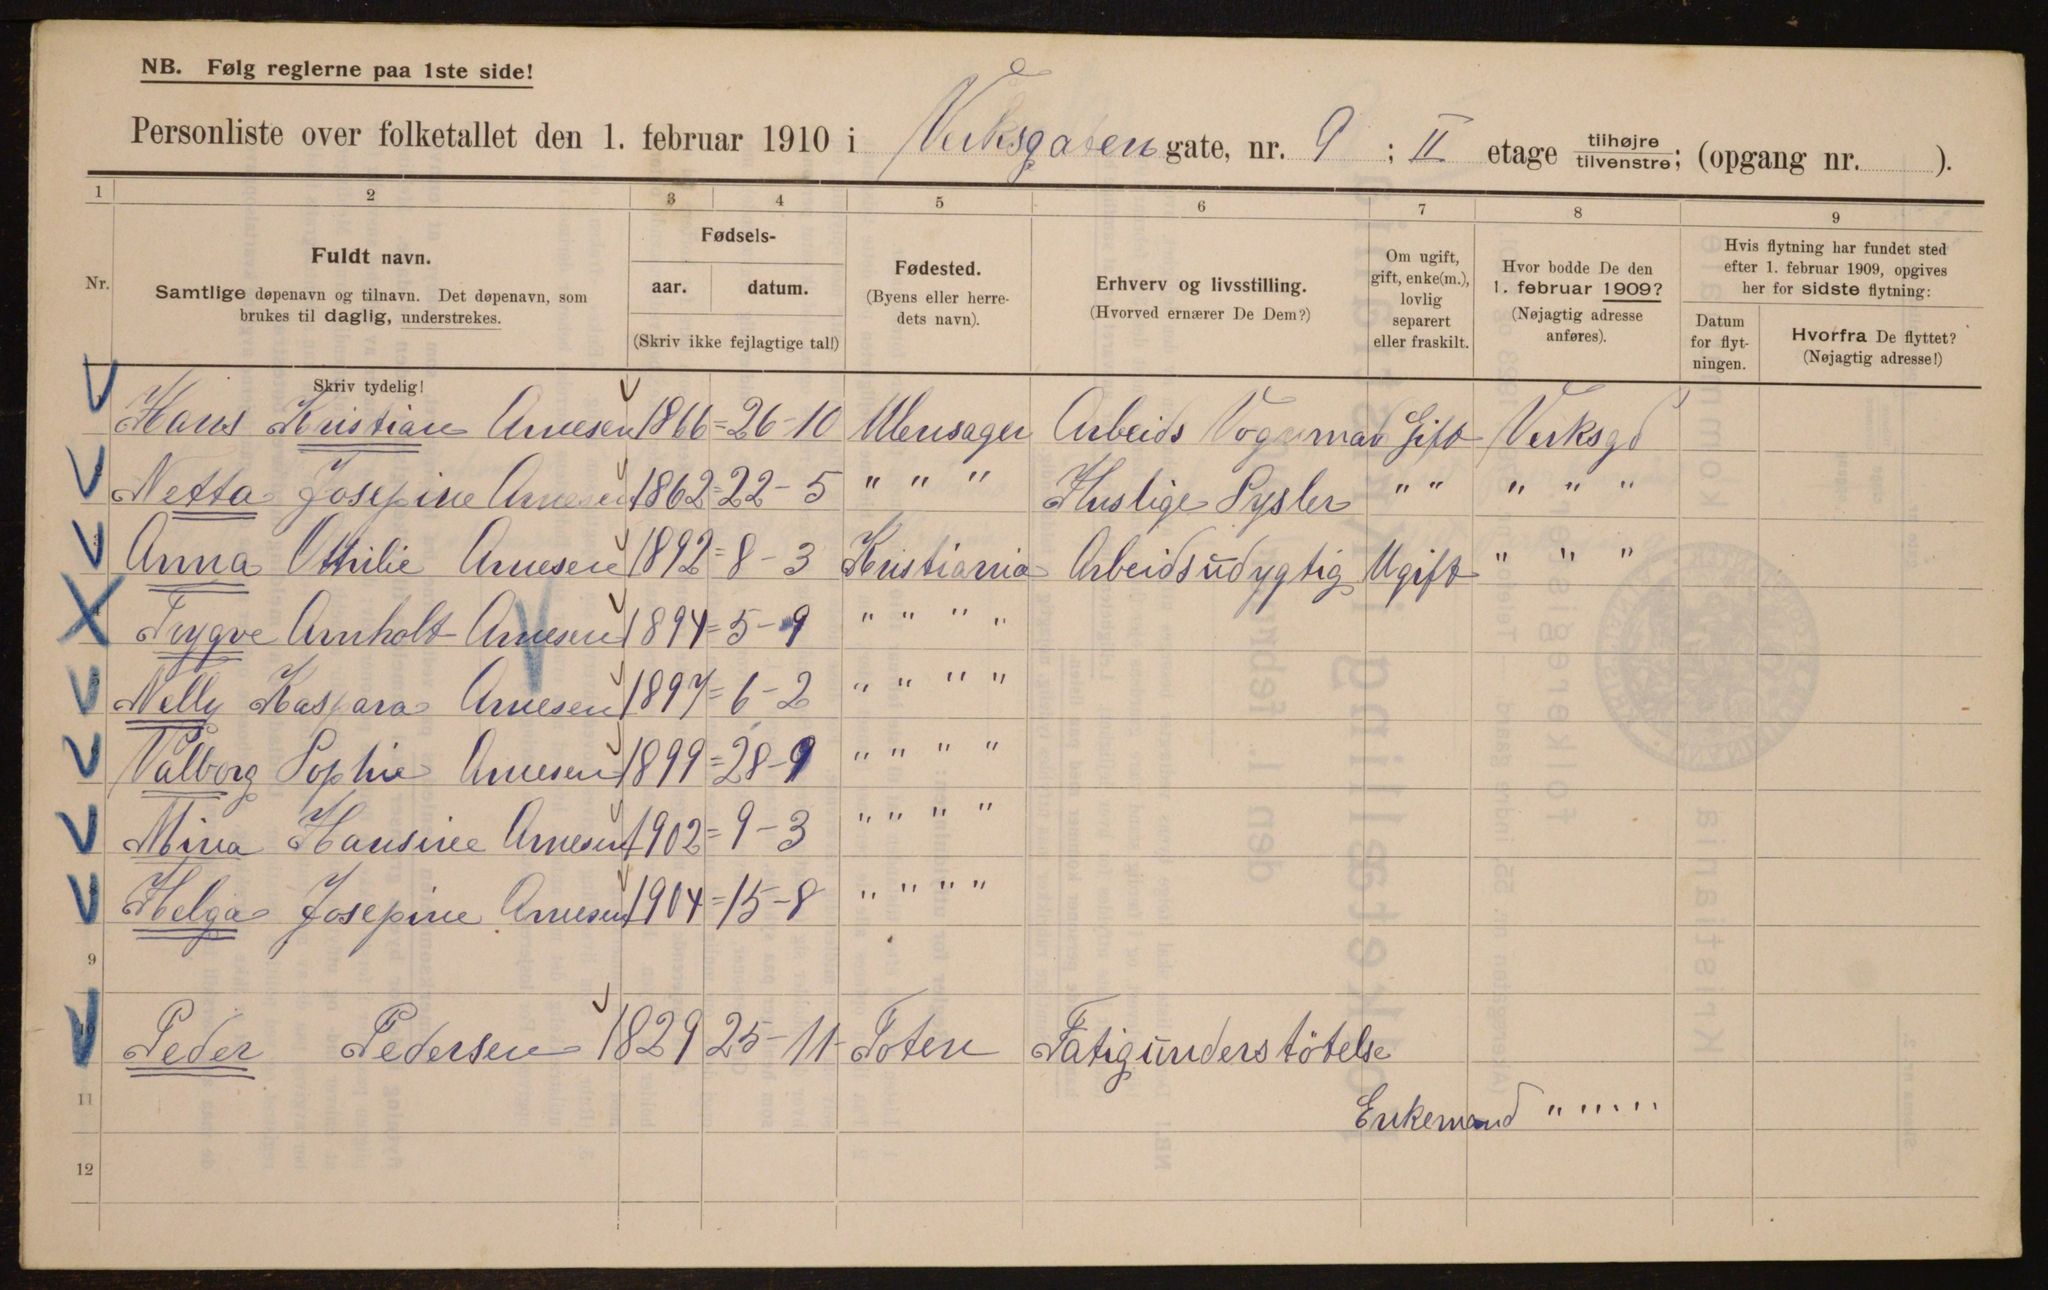 NB. Følg reglerne paa 1ste side!
Personliste over folketallet den 1. februar 1910 i Verksgaten gate, nr. 9 ; II etage tilhøjre / tilvenstre; (opgang nr. ).
1 2 3 4 5 6 7 8 9
Nr.
Fuldt navn.
Samtlige døpenavn og tilnavn. Det døpenavn, som
brukes til daglig, understrekes.
Skriv tydelig!
Fødsels-
aar. datum.
(Skriv ikke fejlagtige tal!)
Fødested.
(Byens eller herre-
dets navn).
Erhverv og livsstilling.
(Hvorved ernærer De Dem?)
Om ugift,
gift, enke(m.),
lovlig
separert
eller fraskilt.
Hvor bodde De den
1. februar 1909?
(Nøjagtig adresse
anføres).
Hvis flytning har fundet sted
efter 1. februar 1909, opgives
her for sidste flytning:
Datum
for flyt-
ningen.
Hvorfra De flyttet?
(Nøjagtig adresse!)
Hans Kristian Arnesen 1866 = 26-10 Ullensager Arbeids Vognmand Gift Verksgd
Netta Josepine Arnesen 1862 = 22-5 " " " Huslige Sysler " " " " "
Anna Othilie Arnesen 1892 = 8-3 Kristiania Arbeidsudygtig Ugift " " "
Trygve Arnholt Arnesen 1894 = 5-9 " " " "
Nelly Kaspara Arnesen 1897 = 6-2 " " " "
Valborg Sophie Arnesen 1899 = 28-9 " " " "
Mina Hansine Arnesen 1902 = 9-3 " " " "
Helga Josepine Arnesen 1904 = 15-8 " " " "
9
10 Peder Pedersen 1829 25-11- Toten Fatigunderstötelse
11 Enkemand " " " "
12